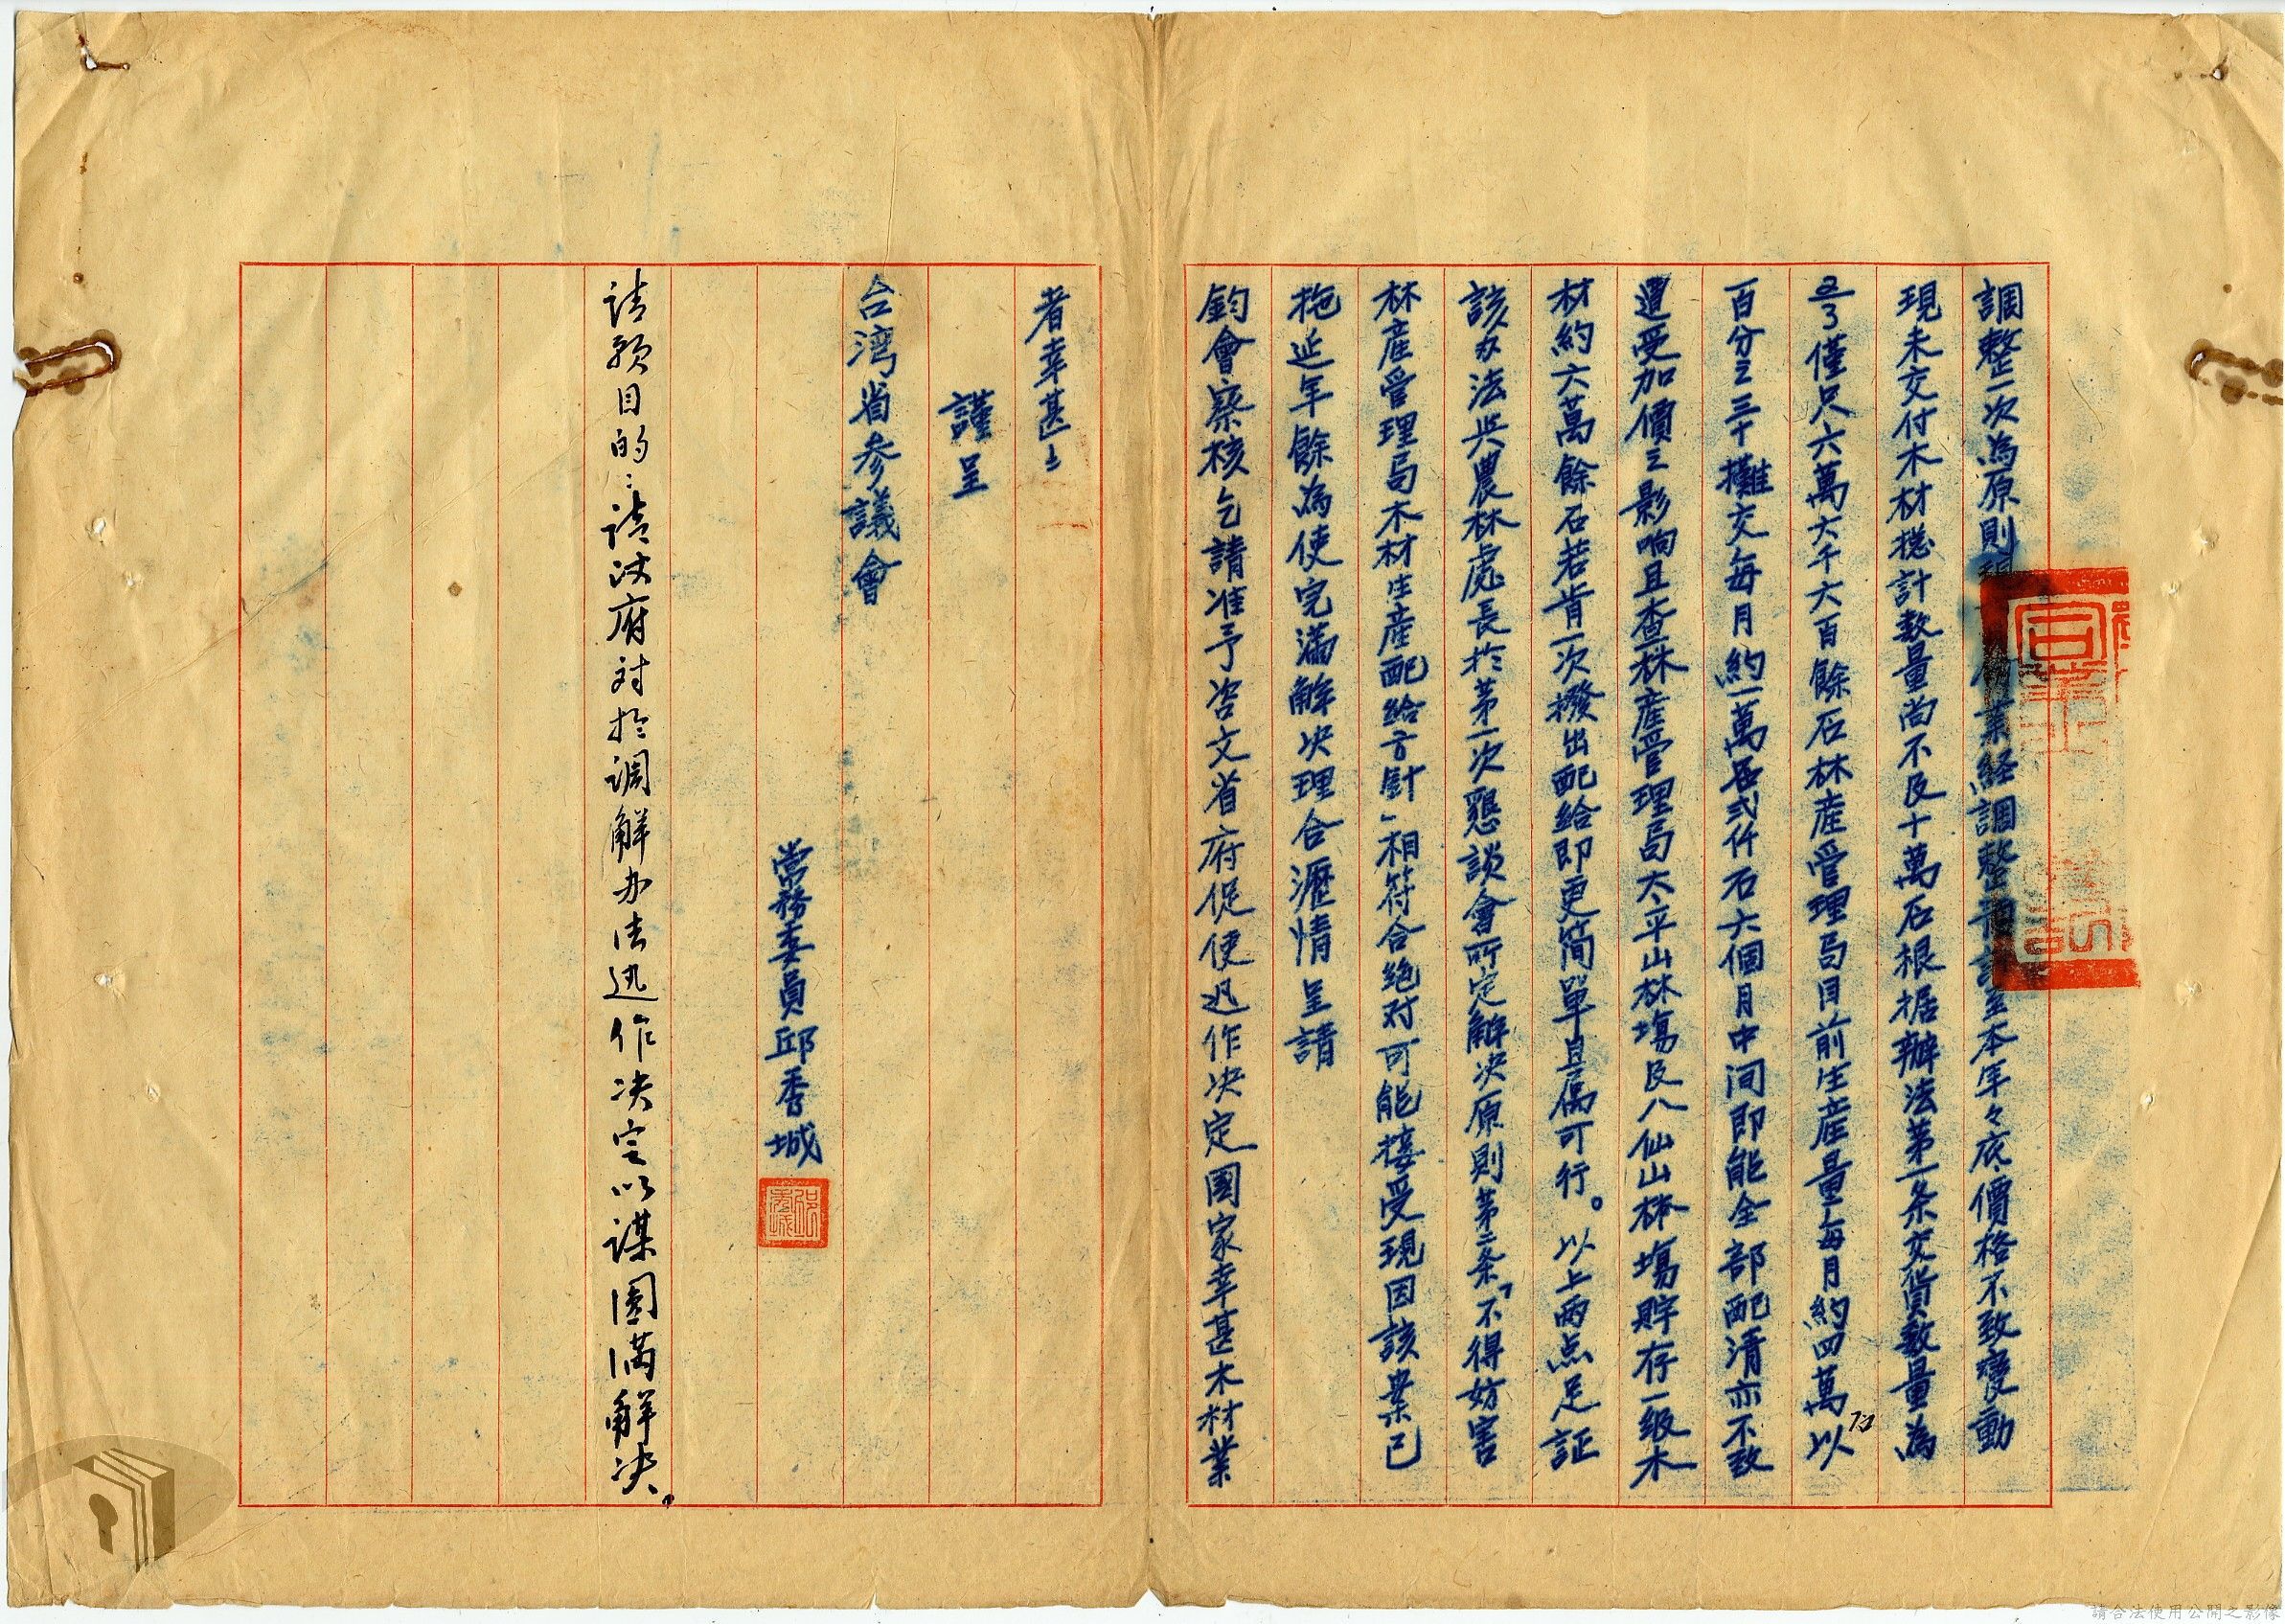 調整一次為原則現業経調整預計至本年々底價格不致變動
現未交付木材總計數量尚不及十萬石根据辦法第一条交貨數量為
2/3僅只六萬六千六百餘石林産管理局目前生産量每月約四萬以
百分之三十攤交每月約一萬弍仟石六個月中间即能全部配清亦不致
遭受加價之影响且查林産管理局太平山林場及八仙山林場貯存一級木
材約六萬餘石若肯一次撥出配給即更简單且属可行。以上両点足証
該办法与農林處長於第一次懇談會所定解决原則第二条「不得妨害
林産管理局木材生産配給方針」相符合絶对可能接受現因該案已
拖延年餘為使完滿解决理合瀝情呈請
鈞會察核乞請准予咨文省府促使迅作决定國家幸甚木材業
者幸甚
謹呈
台湾省参議會
常務委員邱秀城
邱秀城
請願目的:請政府对於調解办法迅作决定以謀圓満解决。
請合法使用公開之影像